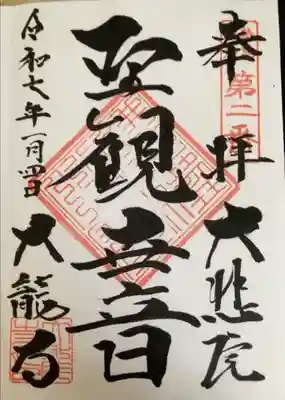 第二番
奉拝大悲
聖観世音
令和七年一月四日
大龍寺